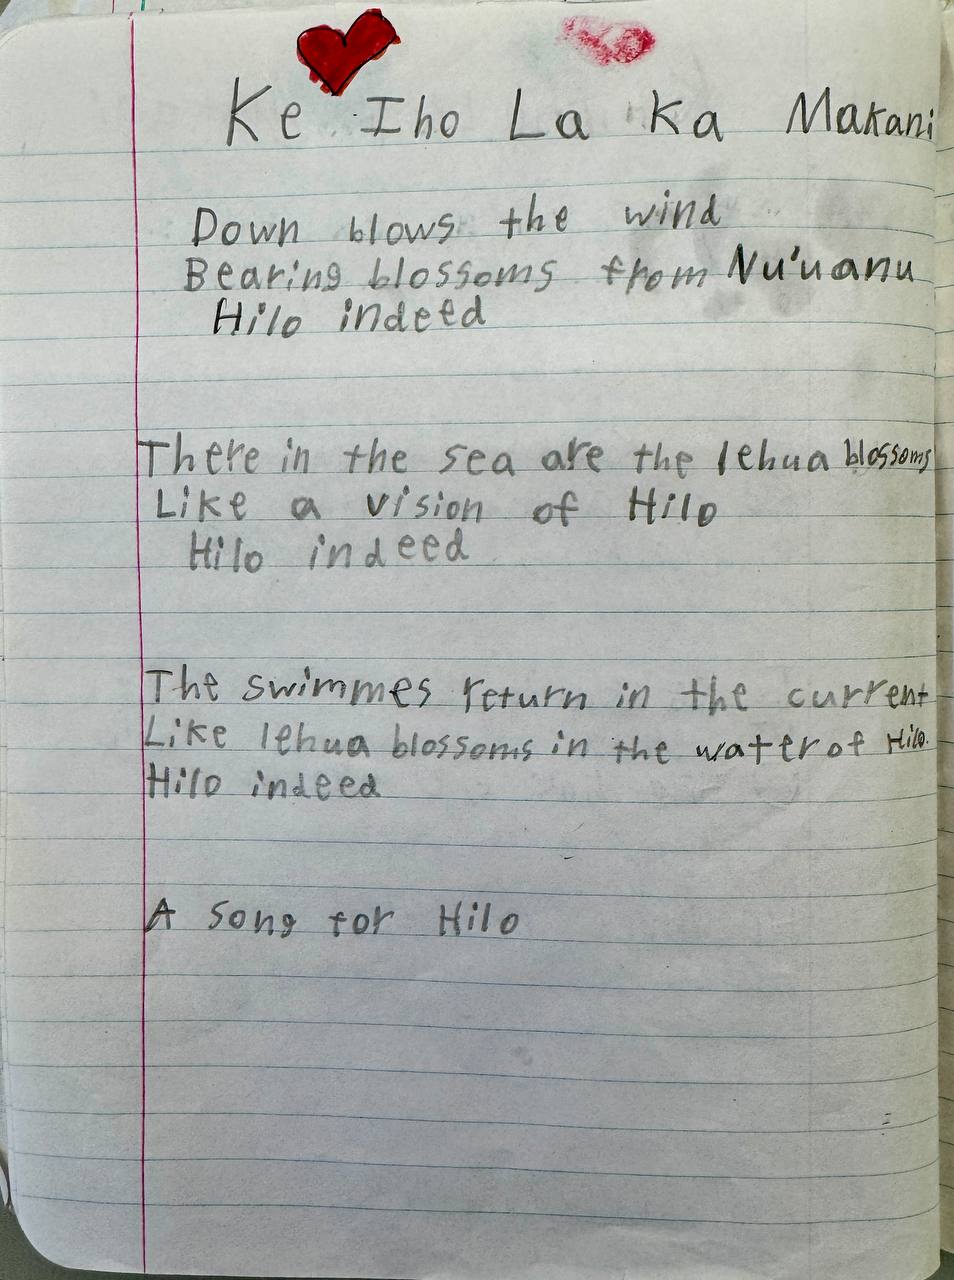 Ke Iho La Ka Makani
Down blows the wind
Bearing blossoms from Nu'uanu
Hilo indeed
There in the sea are the lehua blossoms
Like a vision of Hilo
Hilo indeed
The swimmes return in the current
Like lehua blossoms in the water of Hilo.
Hilo indeed
A song for Hilo